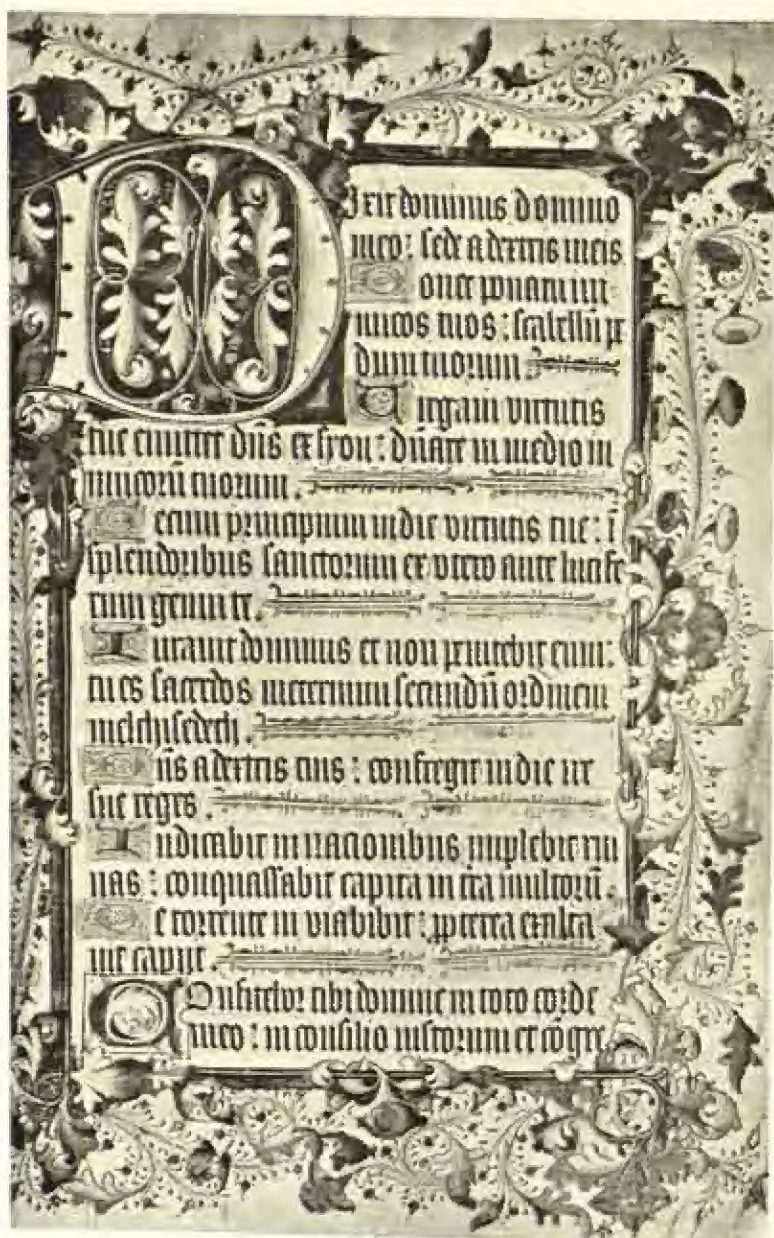 Dixit dominus domino
meo: sede a dextris meis
Donec ponam ini
micos tuos: scabellū pe
dum tuorum
Virgam virtutis
tue emittet dn̄s ex syon: dn̄are in medio in
imicorū tuorum.
Tecum principium in die virtutis tue: ī
splendoribus sanctorum ex vtero ante lucife
rum genui te.
Iurauit dominus et non penitebit eum:
tu es sacerdos in eternum secundū ordinem
melchisedech.
Dn̄s a dextris tuis: confregit in die ire
sue reges.
Iudicabit in nacionibus implebit rui
nas: conquassabit capita in t̄ra multorū.
De torrente in via bibit: ꝓpterea exalta
uit caput.
Confitebor tibi domine in toto corde
meo: in consilio iustorum et cōgre